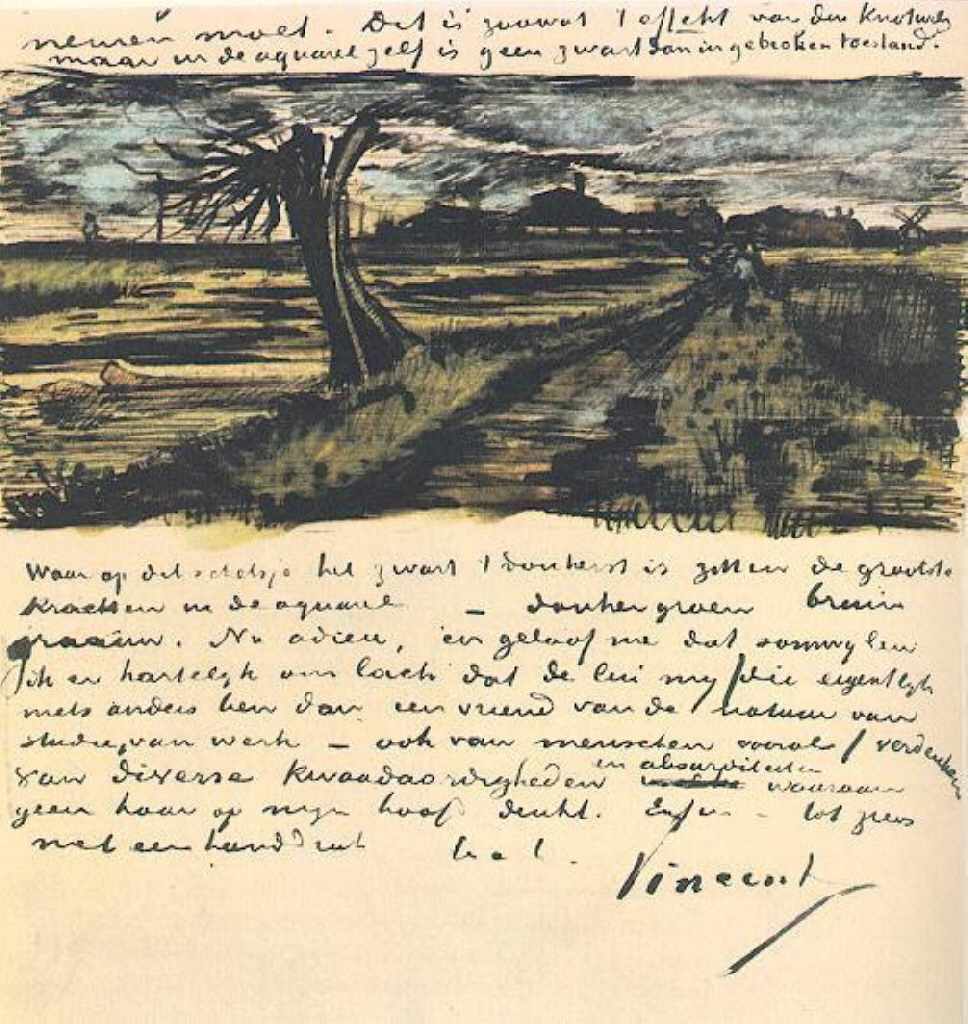 nemen moet. Dit is zoowat 't effekt van den Knotwilg
maar in de aquarel zelf is geen zwart dan in gebroken toestand.
Waar op dit schetsje het zwart 't donkerst is zitten de grootste
krachten in de aquarel – donkergroen bruin
graauw. Nu adieu, en geloof me dat somwylen
ik er hartelyk om lach dat de lui my (die eigentlyk
niets anders ben dan een vriend van de natuur van
studie, van werk – ook van menschen vooral) verdenken
van diverse kwaadaardigheden en absurditeiten waaraan
geen haar op myn hoofd denkt. Enfin – tot ziens
met een handdruk t. à t.
Vincent